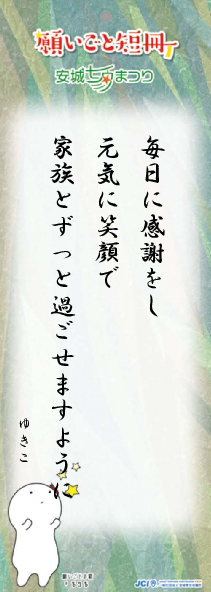 願いごと短冊
安城七夕まつり
毎日に感謝をし
元気に笑顔で
家族とずっと過ごせますように
ゆきこ
JCI